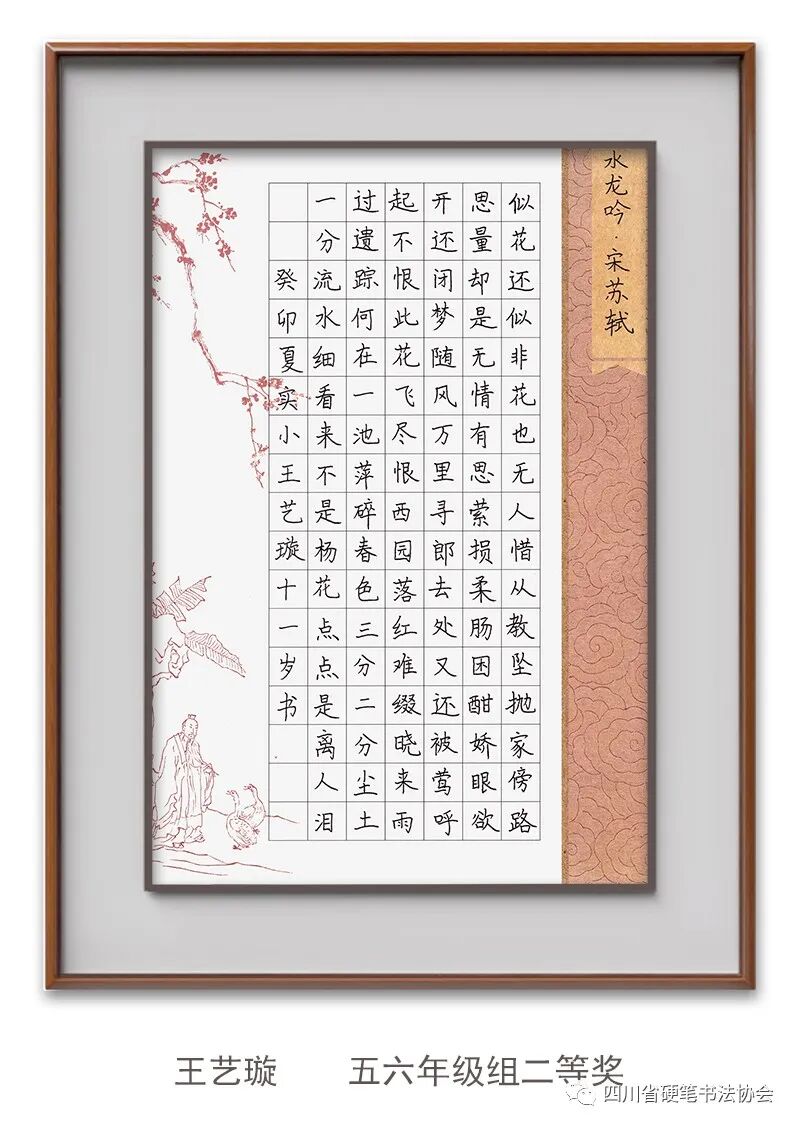 水龙吟·宋苏轼
似花还似非花也无人惜从教坠抛家傍路
思量却是无情有思萦损柔肠困酣娇眼欲
开还闭梦随风万里寻郎去处又还被莺呼
起不恨此花飞尽恨西园落红难缀晓来雨
过遗踪何在一池萍碎春色三分二分尘土
一分流水细看来不是杨花点点是离人泪
癸卯夏实小王艺璇十一岁书
王艺璇 五六年级组二等奖
四川省硬笔书法协会